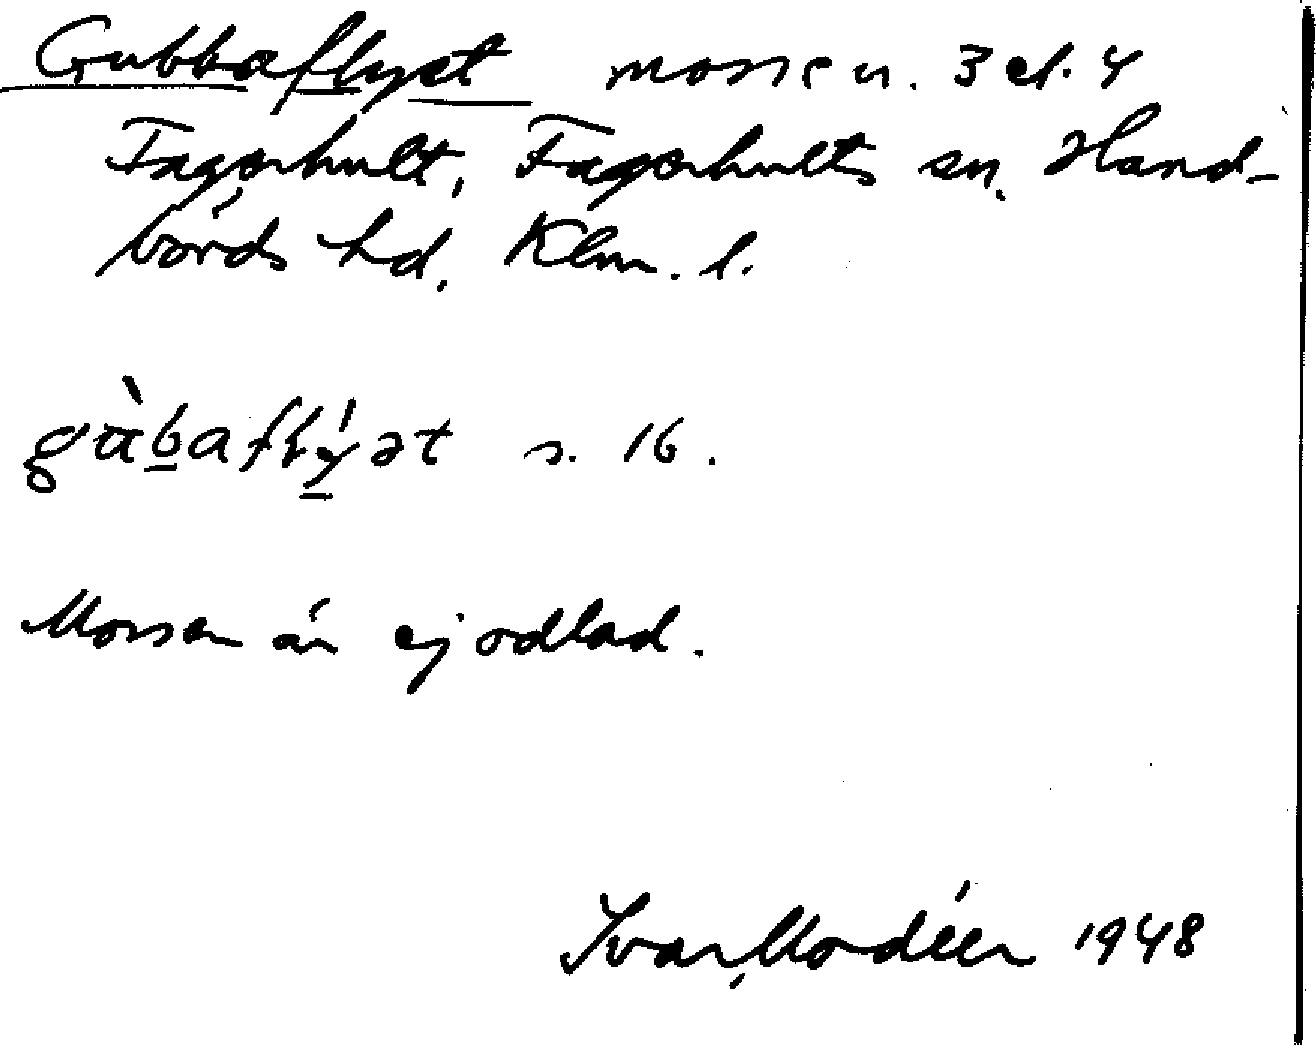 Gubbaflyet mosse u. 3 el. 4
Fagerhult, Fagerhults sn. Hand-
börds hd. Klm. l.
gùbaflýət s. 16.
Mossen är ej odlad.
Ivar Modéer 1948